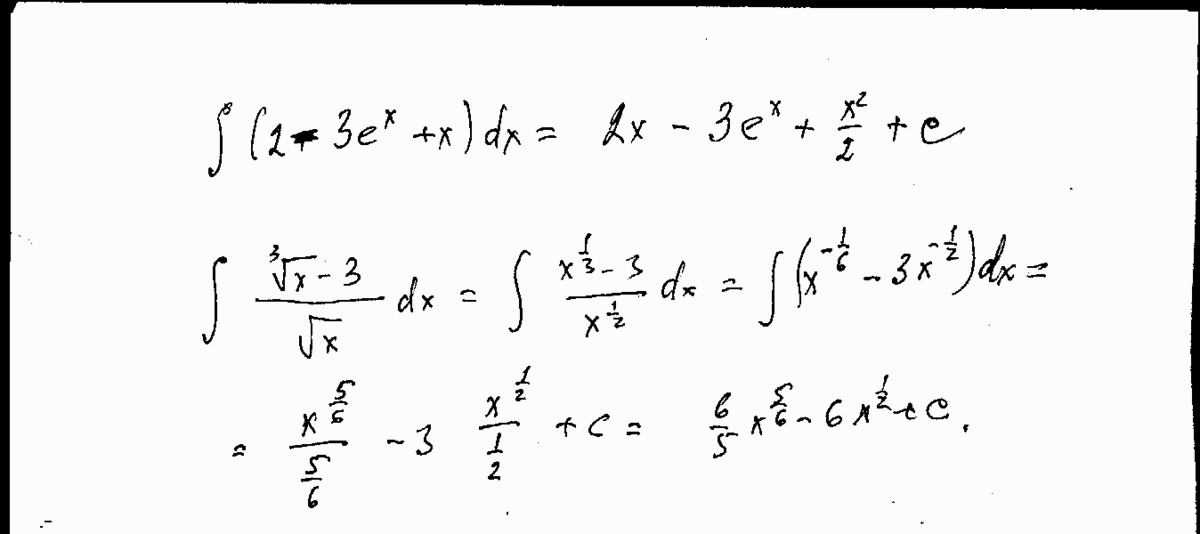 ∫(2-3eˣ+x)dx = 2x - 3eˣ + x²/2 + c
∫ (∛x - 3)/√x dx = ∫ (x^(1/3) - 3)/x^(1/2) dx = ∫(x^(-1/6) - 3x^(-1/2))dx =
= x^(5/6)/(5/6) - 3 x^(1/2)/(1/2) + c = 6/5 x^(5/6) - 6x^(1/2) + c.